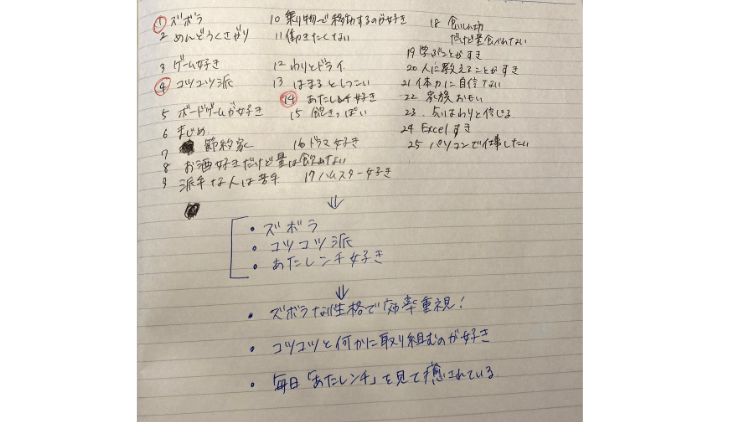 ① ズボラ
2 めんどうくさがり
3 ゲーム好き
④ コツコツ派
5 ボードゲームが好き
6 まじめ
7 節約家
8 お酒好きだけど量は飲めない
9 派手な人は苦手
10 乗り物で移動するのが好き
11 働きたくない
12 わりとドライ
13 はまるとしつこい
⑭ あたしンチ好き
15 飽きっぽい
16 ドラマ好き
17 ハムスター好き
18 食いしん坊
だけど量食べれない
19 学ぶことがすき
20 人に教えることがすき
21 体力に自信がない
22 家族おもい
23 占いはわりと信じる
24 Excelすき
25 パソコンで仕事したい
↓
・ズボラ
・コツコツ派
・あたしンチ好き
↓
・ズボラな性格で効率重視!
・コツコツと何かに取り組むのが好き
・毎日「あたしンチ」を見て癒されている